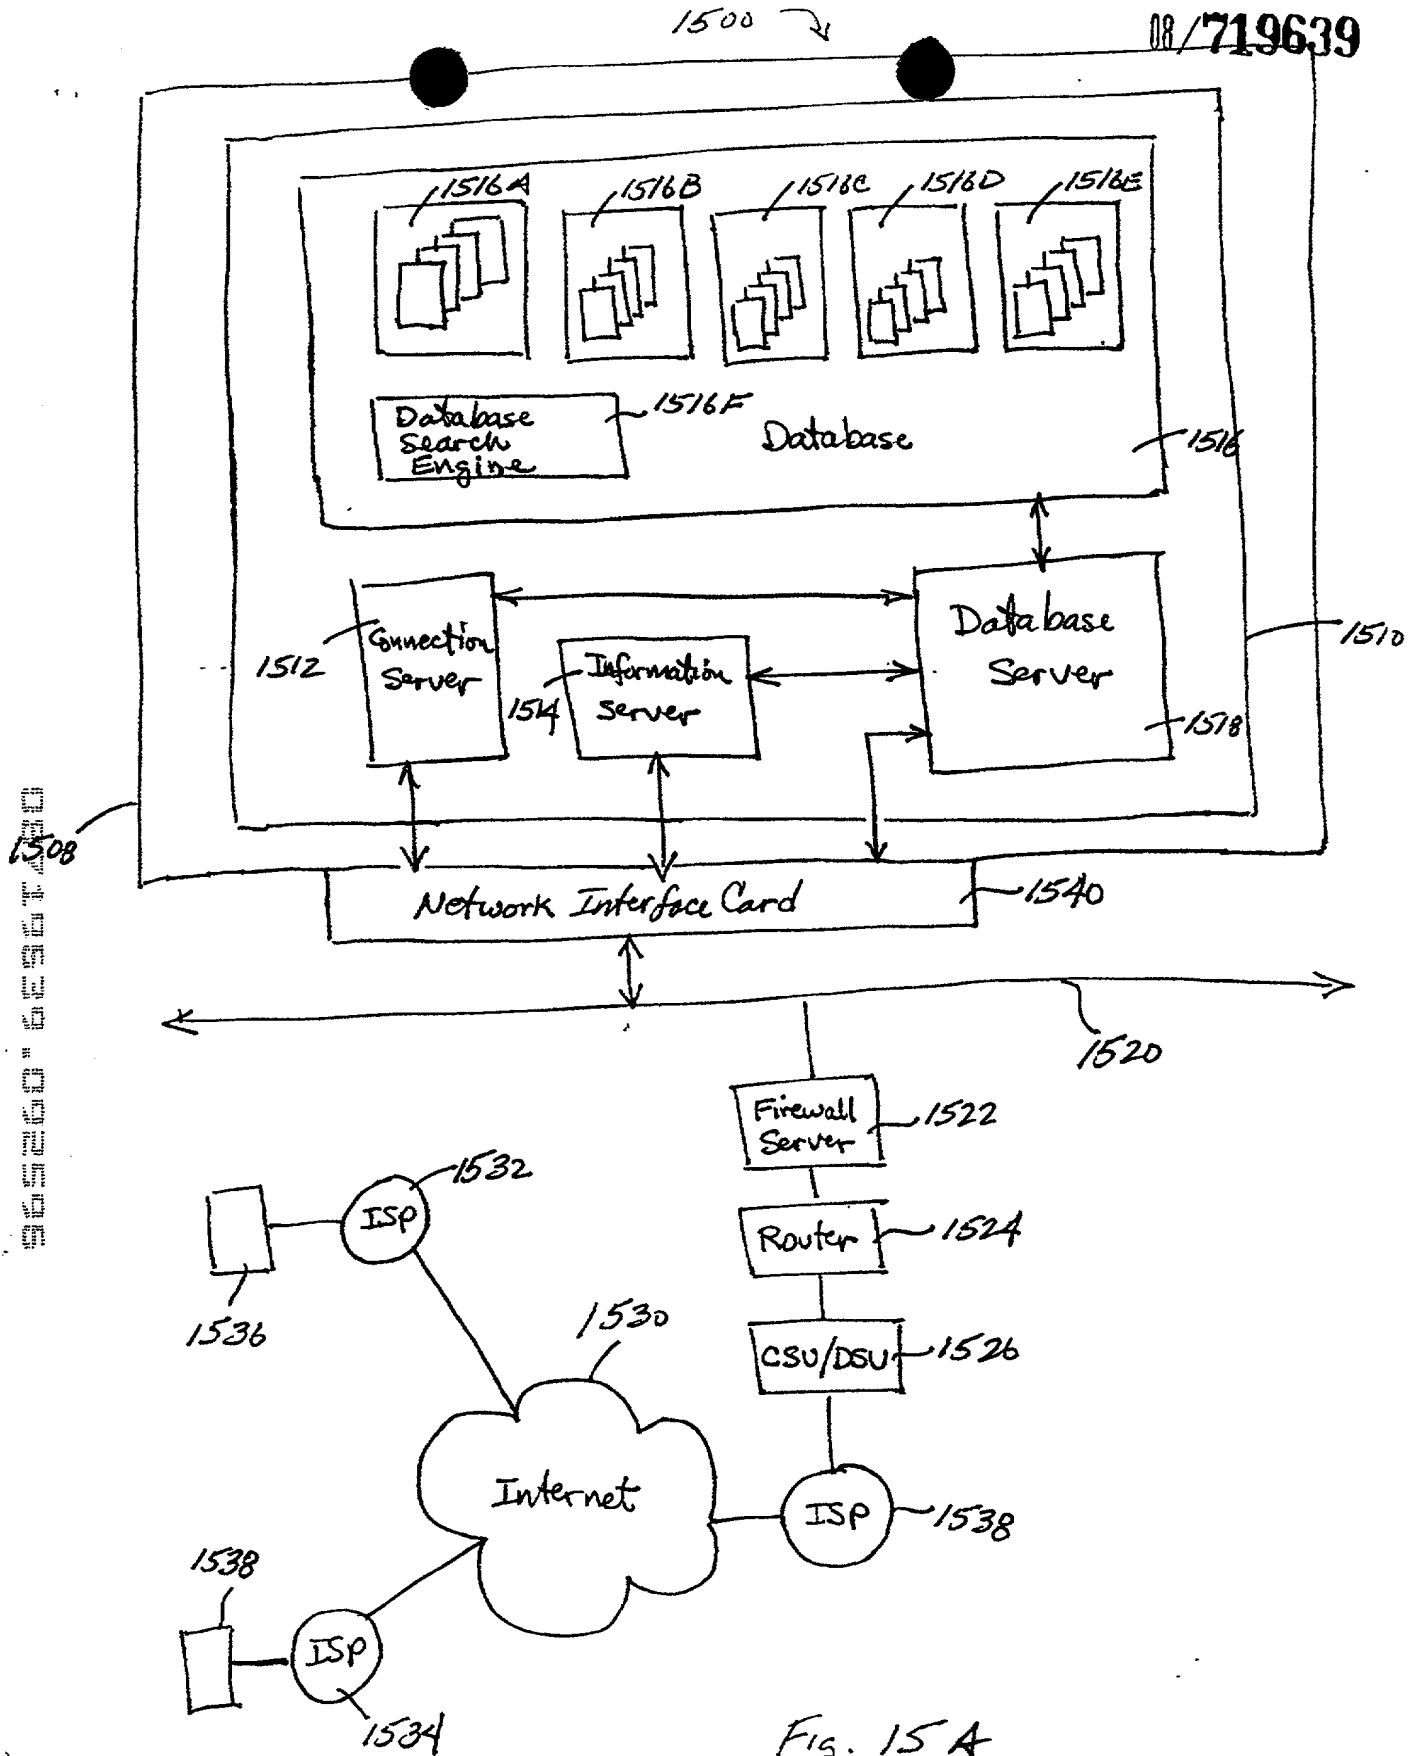 1500
08/719639
1516A
1516B
1516C
1516D
1516E
Database
Search
Engine
1516F
Database
1516
Connection
Server
1512
Information
Server
1514
Database
Server
1518
1510
1508
Network Interface Card
1540
1520
Firewall
Server
1522
ISP
1532
1536
Router
1524
1530
CSU/DSU
1526
Internet
ISP
1538
1538
ISP
1534
Fig. 15A